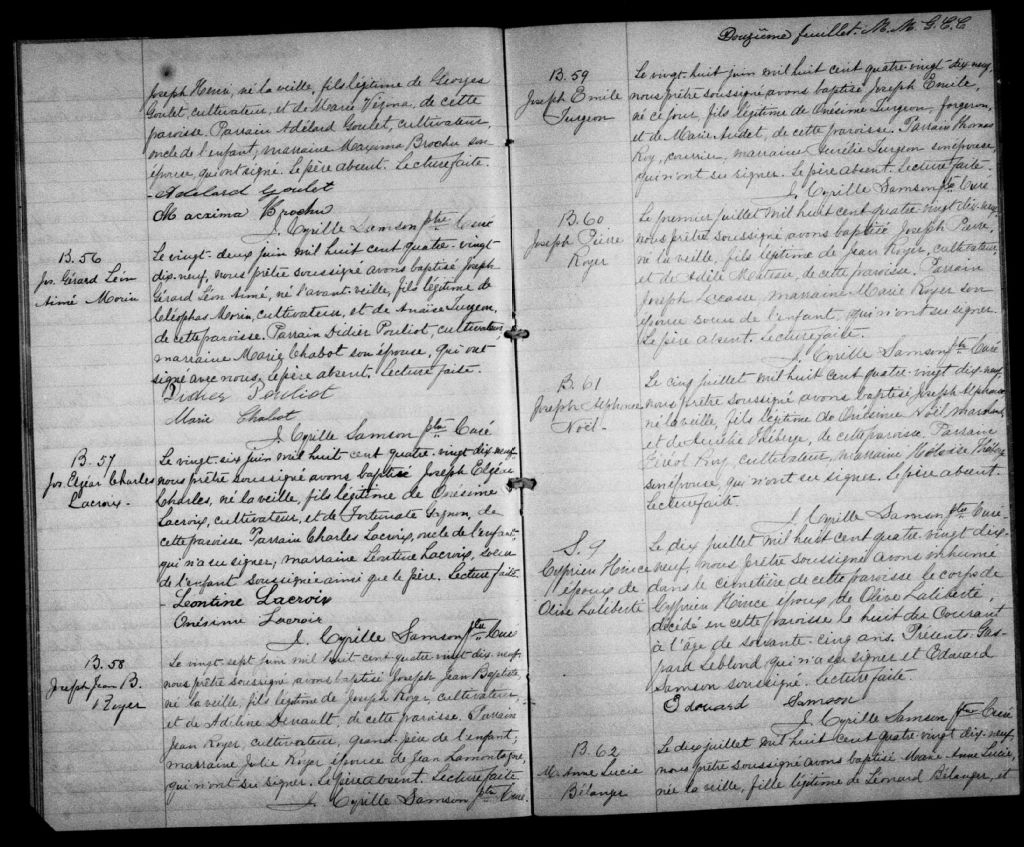 Joseph Henri, né la veille, fils légitime de Georges
Goulet, cultivateur, et de Marie Vézina, de cette
paroisse. Parrain Adélard Goulet, cultivateur,
oncle de l'enfant, marraine Maxima Brochu son
épouse, qui ont signé. Le père absent. Lecture faite.
- Adélard Goulet
Maxima Brochu
J. Cyrille Samson ptre Curé
B. 56
Jos. Gérard Léon
Aimé Morin
Le vingt-deux juin mil huit cent quatre-vingt
dix-neuf, nous prêtre soussigné avons baptisé Joseph
Gérard Léon Aimé, né l'avant-veille, fils légitime de
Cléophas Morin, cultivateur, et de Anaïse Turgeon,
de cette paroisse. Parrain Didier Pouliot, cultivateur,
marraine Marie Chabot son épouse, qui ont
signé avec nous, le père absent. Lecture faite.
Didier Pouliot
Marie Chabot
J. Cyrille Samson ptre Curé
B. 57
Jos. Elzéar Charles
Lacroix -
Le vingt-six juin mil huit cent quatre-vingt-dix-neuf
nous prêtre soussigné avons baptisé Joseph Elzéar
Charles, né la veille, fils légitime de Onésime
Lacroix, cultivateur, et de Fortunate, de
cette paroisse. Parrain Charles Lacroix, oncle de l'enfant
qui n'a su signer, marraine Léontine Lacroix, soeur
de l'enfant soussignée ainsi que le père. Lecture faite.
- Léontine Lacroix
Onésime Lacroix
J. Cyrille Samson ptre Curé
B. 58
Joseph Jean B.
Royer
Le vingt-sept juin mil huit cent quatre vingt dix-neuf
nous prêtre soussigné avons baptisé Joseph Jean Baptiste,
né la veille, fils légitime de Joseph Royer, cultivateur,
et de Adéline, de cette paroisse. Parrain
Jean Royer, cultivateur, grand-père de l'enfant,
marraine Julie Royer épouse de Jean Lamontagne,
qui n'ont su signer. Le père absent. Lecture faite
J. Cyrille Samson ptre Curé.
Douzième feuillet. M. M. G. C. C
B. 59
Joseph Emile
Turgeon
Le vingt-huit juin mil huit cent quatre-vingt dix-neuf,
nous prêtre soussigné avons baptisé Joseph Emile,
né ce jour, fils légitime de Onésime Turgeon, forgeron,
et de Marie Audet, de cette paroisse. Parrain Thomas
Roy, marraine Aurélie Turgeon son épouse,
qui n'ont su signer. Le père absent. Lecture faite.
J. Cyrille Samson ptre Curé
B. 60
Joseph Pierre
Royer
Le premier juillet mil huit cent quatre-vingt dix-neuf
nous prêtre soussigné avons baptisé Joseph Pierre,
né la veille, fils légitime de Jean Royer, cultivateur
et de Adèle Mateau, de cette paroisse. Parrain
Joseph Lecasse, marraine Marie Royer son
épouse soeur de l'enfant, qui n'ont su signer.
Le père absent. Lecture faite.
J. Cyrille Samson ptre Curé
B. 61
Joseph Alphonse
Noël -
Le cinq juillet mil huit cent quatre-vingt dix-neuf,
nous prêtre soussigné avons baptisé Joseph Alphonse
né la veille, fils légitime de Onésime Noël,
et de Aurélie Théberge, de cette paroisse. Parrain
Roy, cultivateur, marraine
son épouse, qui n'ont su signer. Le père absent.
Lecture faite.
J. Cyrille Samson ptre Curé.
S. 9
Cyprien Hince
époux de
Olive Laliberté
Le dix juillet mil huit cent quatre-vingt dix-
neuf, nous prêtre soussigné avons inhumé
dans le cimetière de cette paroisse le corps de
Cyprien Hince époux de Olive Laliberté,
décédé en cette paroisse le huit du Courant
à l'âge de soixante-cinq ans. Présents: Gas-
pard Leblond qui n'a su signer et Edouard
Samson soussigné. Lecture faite.
Edouard Samson
J. Cyrille Samson ptre Curé
B. 62
M. Anne Lucie
Bélanger
Le dix juillet mil huit cent quatre vingt dix-neuf,
nous prêtre soussigné avons baptisé Marie Anne Lucie,
née la veille, fille légitime de Léonard Bélanger, et